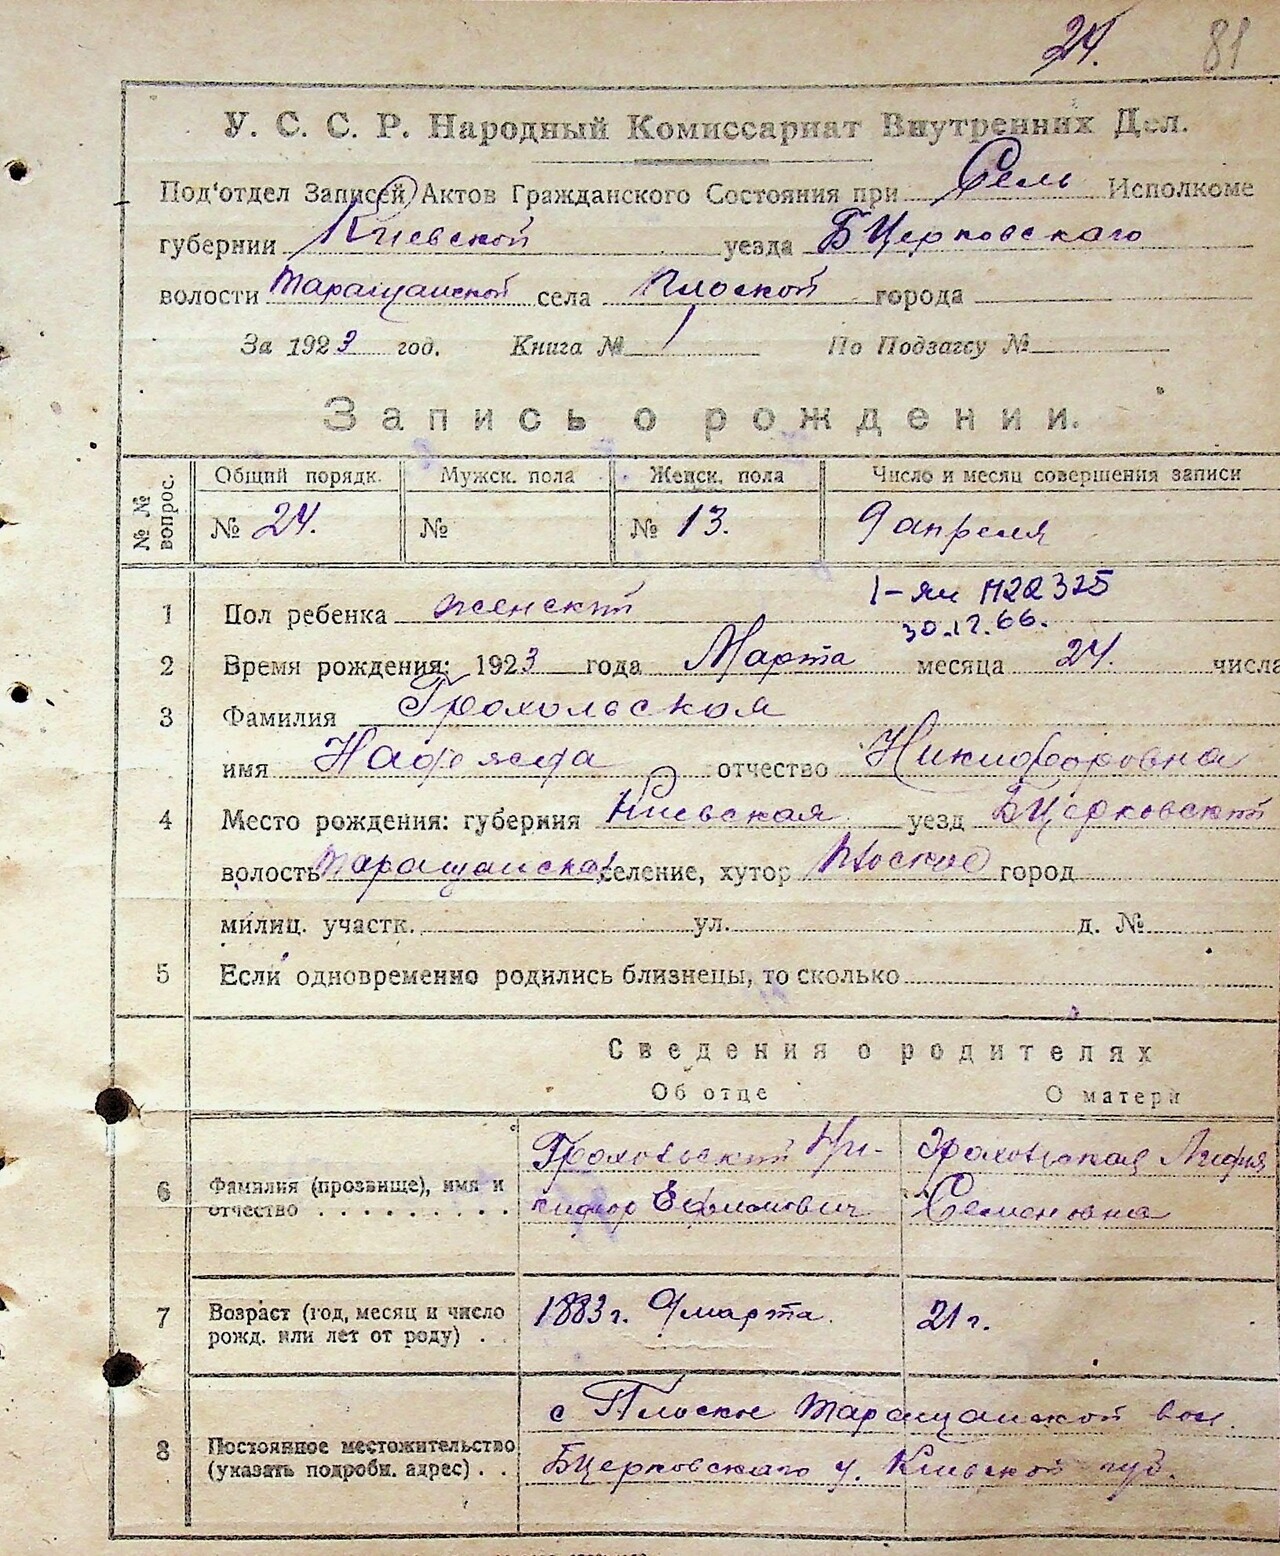 24. 81
У. С. С. Р. Народный Комиссариат Внутренних Дел.
Под'отдел Записей Актов Гражданского Состояния при Сель Исполкоме
губернии Киевской уезда БЦерковскаго
волости Таращанской села Плоской города
За 1923 год. Книга № 1 По Подзагсу №
Запись о рождении.
№ № вопрос. Общий порядк. Мужск. пола Женск. пола Число и месяц совершения записи
№ 24. № № 13. 9 апреля
1 Пол ребенка женский
30.12.66.
2 Время рождения: 1923 года Марта месяца 24. числа
3 Фамилия Грохольская
имя отчество Никифоровна
4 Место рождения: губерния Киевская уезд БЦерковский
волость Таращанская селение, хутор Плоское город
милиц. участк. ул. д. №
5 Если одновременно родились близнецы, то сколько
Сведения о родителях
Об отце О матери
6 Фамилия (прозвище), имя и отчество . . . . . . . . . Грохольский Ни-
кифор Ефимович
Грохольская Лидия
Семеновна
7 Возраст (год, месяц и число рожд. или лет от роду) . . 1883 г. 9 марта. 21 г.
8 Постоянное местожительство (указать подробн. адрес) . . с Плоское Таращанской вол.
БЦерковскаго у. Киевской губ.